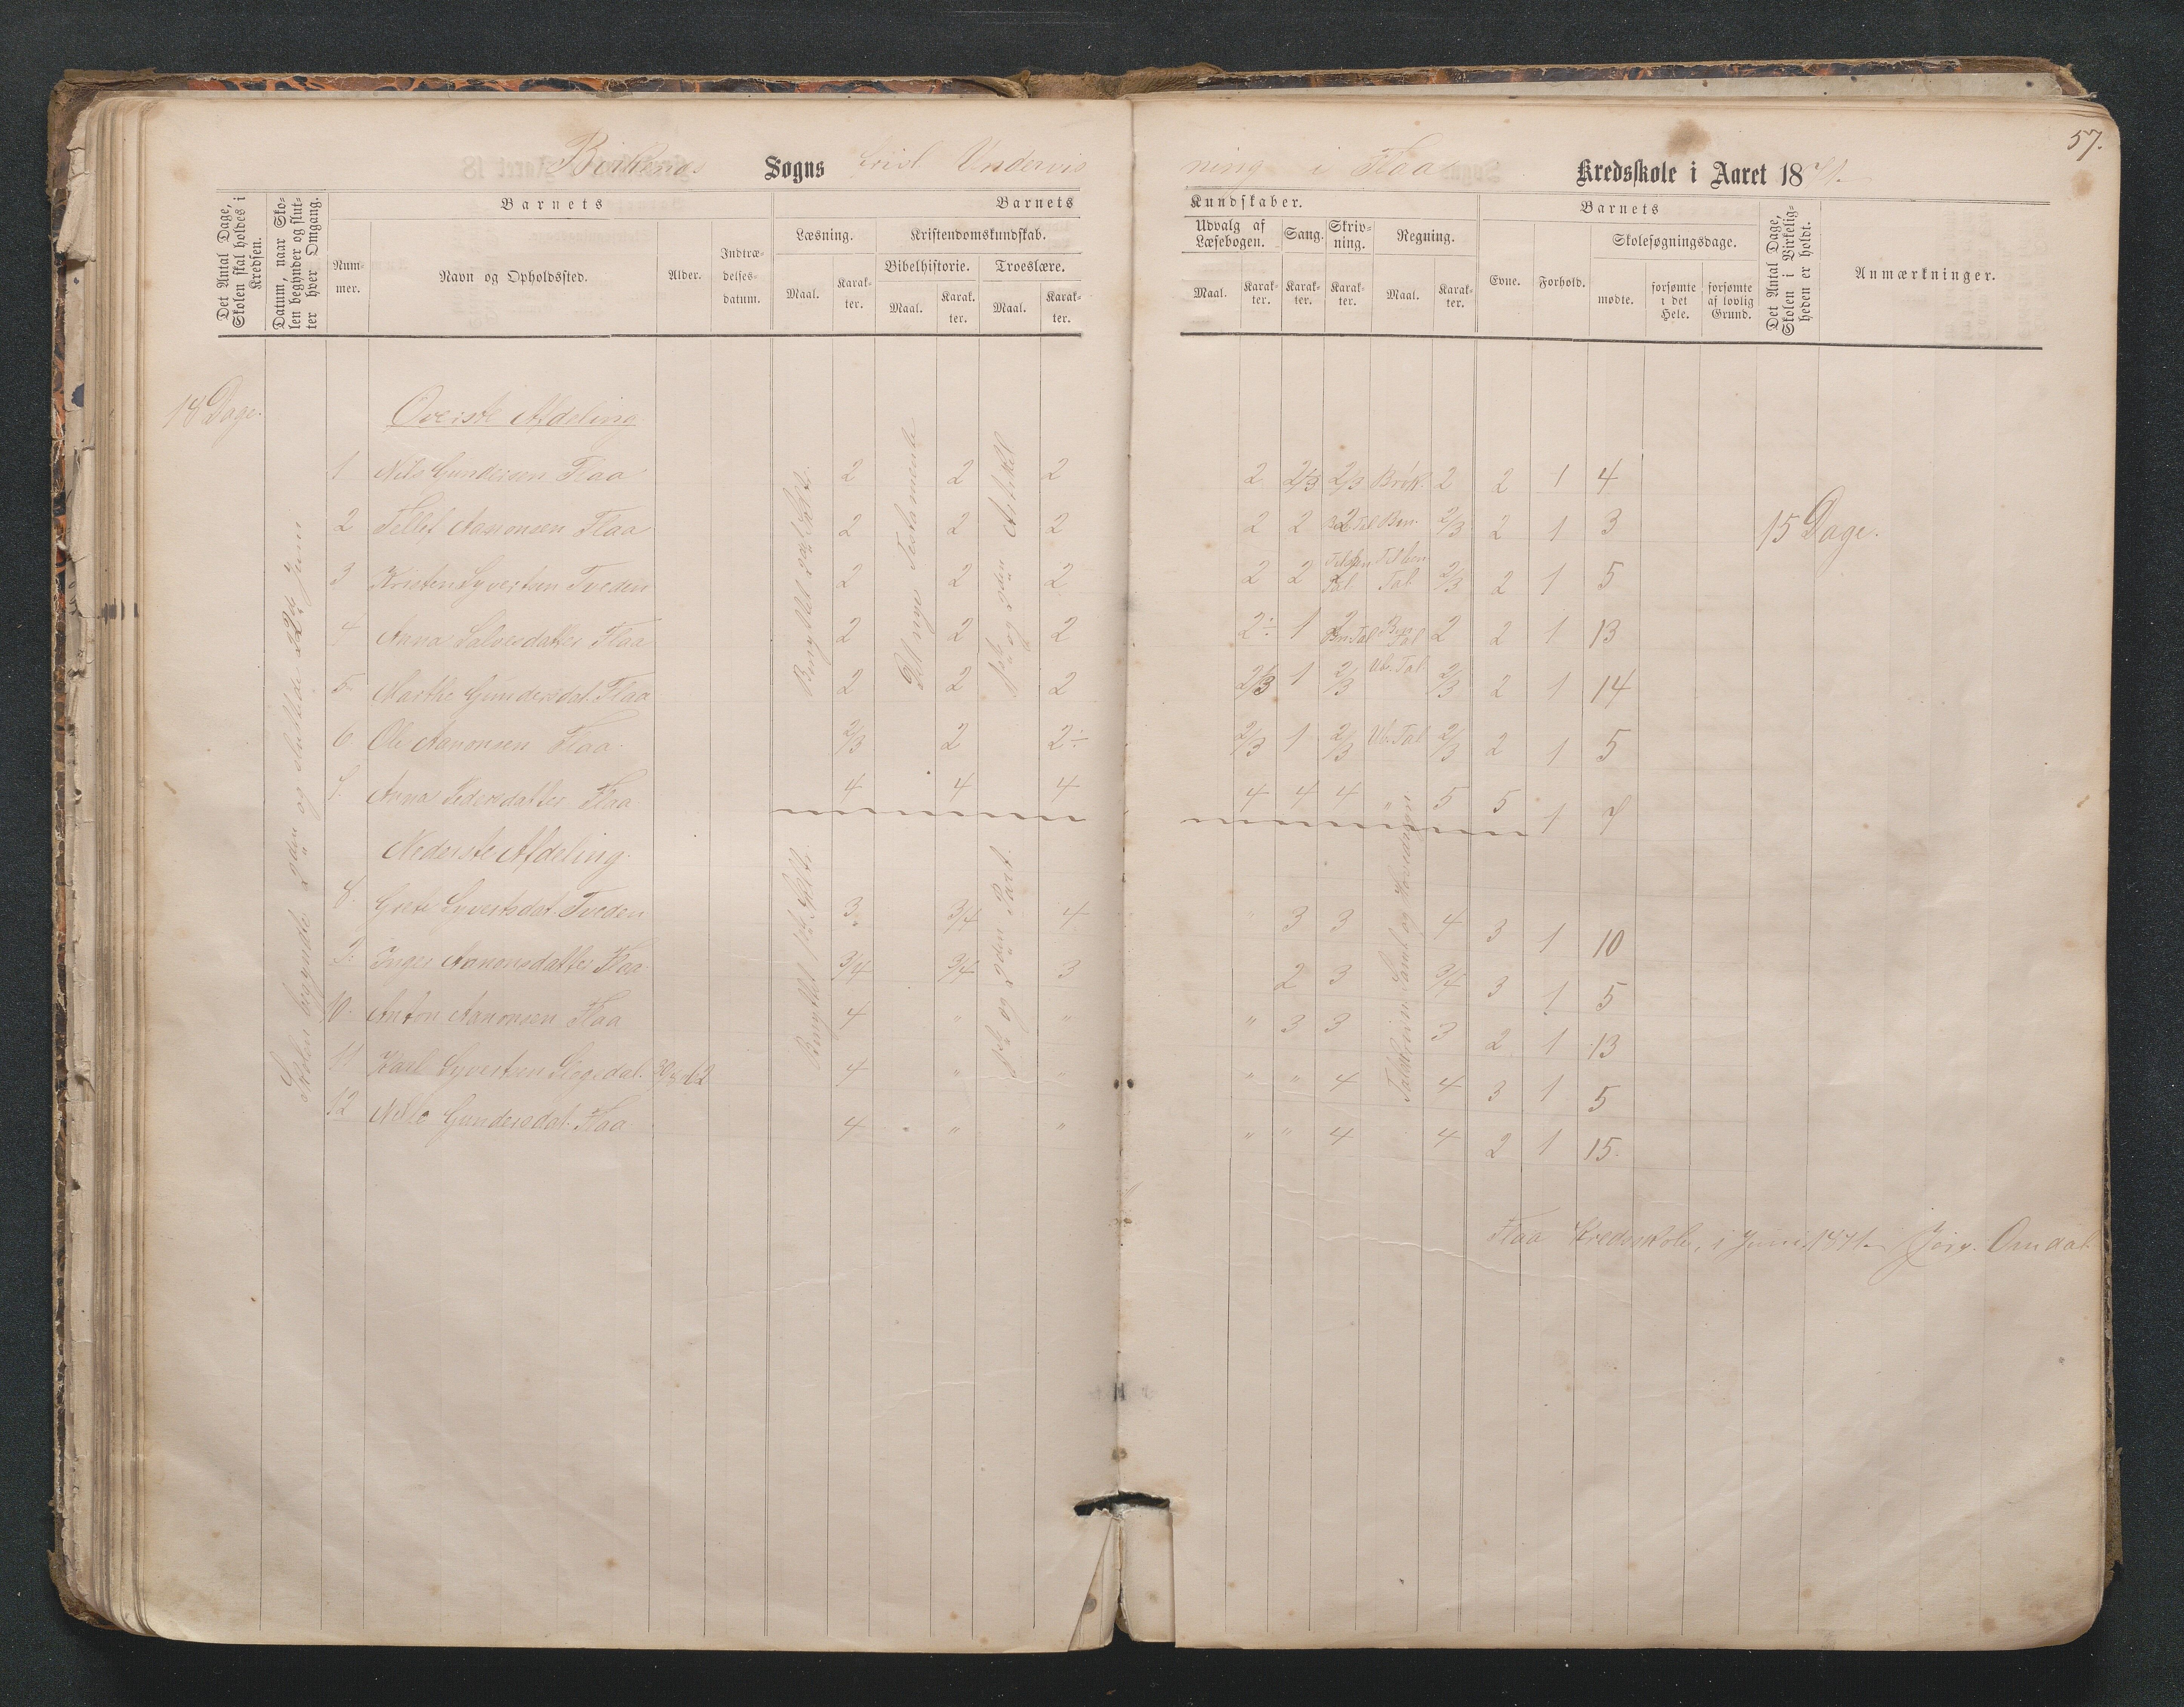 57.
Birkenes Sogns frivl Undervis
ning i Flaa Kredsskole i Aaret 1871.
Det Antal Dage, Skolen skal holdes i Kredsen.
Datum, naar Skolen begynder og slutter hver Omgang.
Barnets
Nummer.
Navn og Opholdssted.
Alder.
Indtrædelsesdatum.
Barnets
Læsning.
Maal.
Karakter.
Kristendomskundskab.
Bibelhistorie.
Maal.
Karakter.
Troeslære.
Maal.
Karakter.
Kundskaber.
Udvalg af Læsebogen.
Maal.
Karakter.
Sang.
Karakter.
Skrivning.
Karakter.
Regning.
Maal.
Karakter.
Barnets
Evne.
Forhold.
Skolesøgningsdage.
mødte.
forsømte i det Hele.
forsømte af lovlig Grund.
Det Antal Dage, Skolen i Virkeligheden er holdt.
Anmærkninger.
18 Dage.
Skolen begyndte 2den og sluttede 22de Juni
Øverste Afdeling
1 Nils Gundersen Flaa 2 2 2 2 2/3 2/3 Brøk. 2 2 1 4
2 Tellef Aanonsen Flaa 2 2 2 2 2 2 Ben. 2/3 2 1 3
15 Dage.
3 Kristen Syvertsen Tveden 2 2 2 2 2 Tal 2/3 2 1 5
4 Anna Salvesdatter Flaa 2 2 2 2÷ 1 2 Ben. Tal 2 2 1 13
5 Marthe Gundersdat. Flaa 2 2 2 2/3 1 2/3 Ub. Tal 2/3 2 1 14
6. Ole Aanonsen Flaa. 2/3 2 2÷ 2/3 1 2/3 Ub. Tal 2/3 2 1 5
7. Anna Pedersdatter Flaa 4 4 4 4 4 4 " 5 5 1 7
til nye Testamente
1ste og 2den Artikel
Nederste Afdeling.
8. Grete Syvertsdat. Tveden 3 3/4 4 " 3 3 4 3 1 10
9. Inger Aanonsdatter Flaa 3/4 3/4 3 2 3 3/4 3 1 5
10. Anton Aanonsen Flaa 4 " " " 3 3 3 2 1 13
11 Karl Syvertsen 4 " " " " 4 4 3 1 5
12 Gundersdat. Flaa 4 " " " " 4 4 2 1 15.
1ste og 2den Part.
Flaa Kredsskole, i Juni 1871. Jörg. Omdal